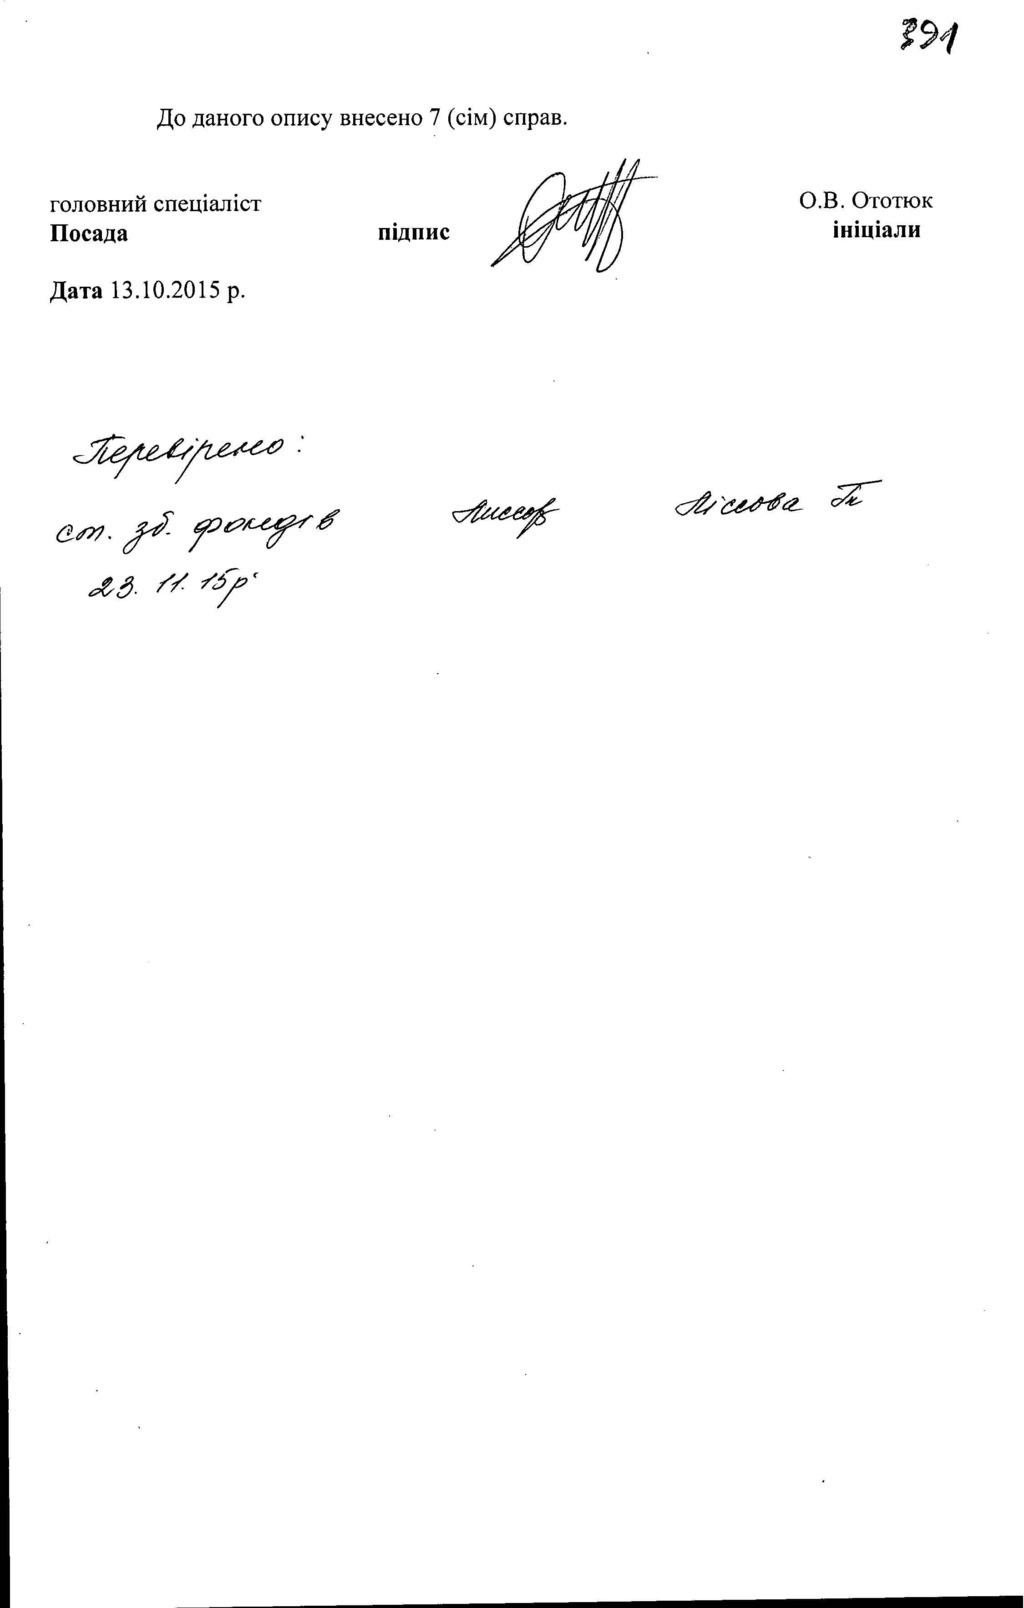 391
До даного опису внесено 7 (сім) справ.
головний спеціаліст О.В. Ототюк
Посада підпис ініціали
Дата 13.10.2015 р.
Перевірено:
ст. зб. фондів Ліссова
23. 11. 15р.